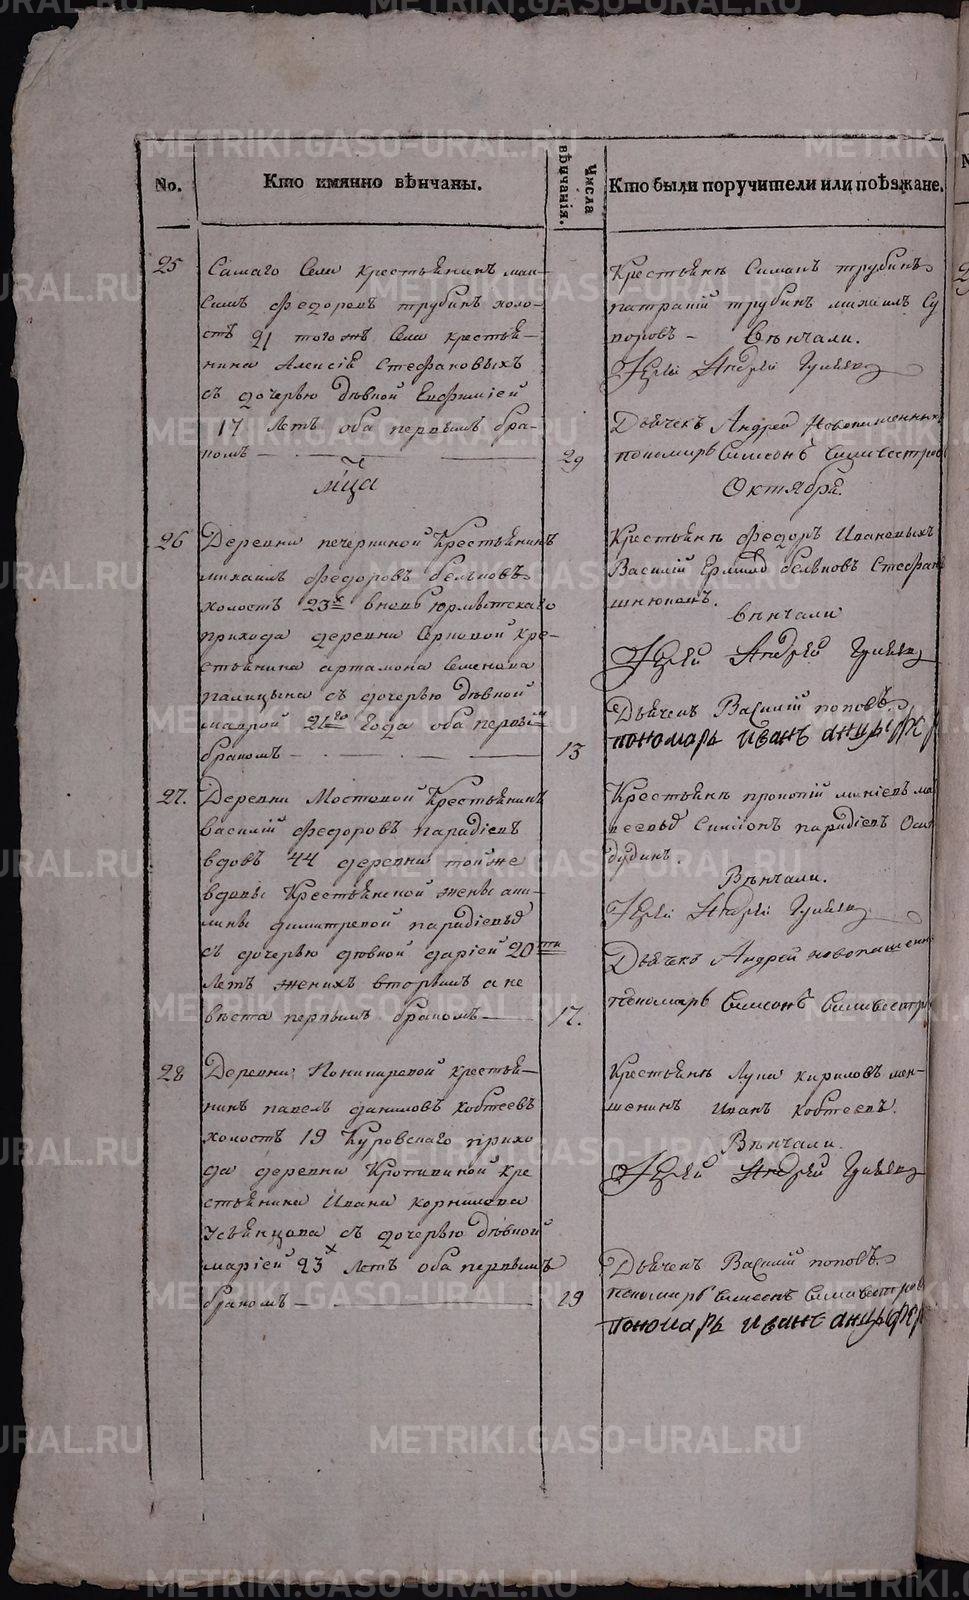 No.
Кто имянно вѣнчаны.
Числа вѣнчанія.
Кто были поручители или поѣзжане.
25
Самаго Села крестьянинъ мак-
симъ федоровъ трубинъ холо-
стъ 21 тогожъ Села крестья-
нина Алексія Стефановыхъ
съ дочерью дѣвкой Евфиміей
17 Летъ оба первымъ бра-
комъ
29
Крестьяне Симонъ трубинъ
патракій трубинъ михаилъ Су
поровъ - Вѣнчали.
Іерей Андрей
Дьячекъ Андрей Новопашенныхъ
пономарь Симеонъ Силивестров
мца
Октября.
26
Деревни печеркиной Крестьянинъ
михаилъ федоровъ бельковъ
холостъ 23х вновь юрмытскаго
прихода деревни Ерковой кре-
стьянина артамона Семенова
палицына съ дочерью дѣвкой
маврой 21го Года оба первым
бракомъ
13
Крестьяне федоръ Ивановыхъ
Василій бельковъ Стефанъ
вѣнчали
Іерей Андрей
Дьячекъ Василій поповъ.
пономарь Иванъ
27.
Деревни Мостовой Крестьянинъ
василій федоровъ парадіевъ
вдовъ 44 деревни той же
вдовы Крестьянской жены аки-
лины димитревой парадіевы
съ дочерью дѣвкой даріей 20ти
Летъ женихъ вторымъ а не
вѣста первымъ бракомъ
17.
Крестьяне прокопій
Симіонъ парадіевъ
дудинъ.
Вѣнчали.
Іерей Андрей
Дьячекъ Андрей новопашенн
пономарь Симеонъ Силивестр
28
Деревни крестья-
нинъ павелъ даниловъ коптеевъ
холостъ 19 Куровскаго прихо
да деревни Кропивиной кре
стьянина Ивана корнилова
Усьянцова съ дочерью дѣвкой
маріей 23х Летъ оба первымъ
бракомъ
19
Крестьяне Лука кириловъ мен-
шенинъ Иванъ коптеевъ.
Вѣнчали.
Іерей Андрей
Дьячекъ Василій поповъ.
пономарь Симеонъ Силивестров
пономарь Иванъ
METRIKI.GASO-URAL.RU